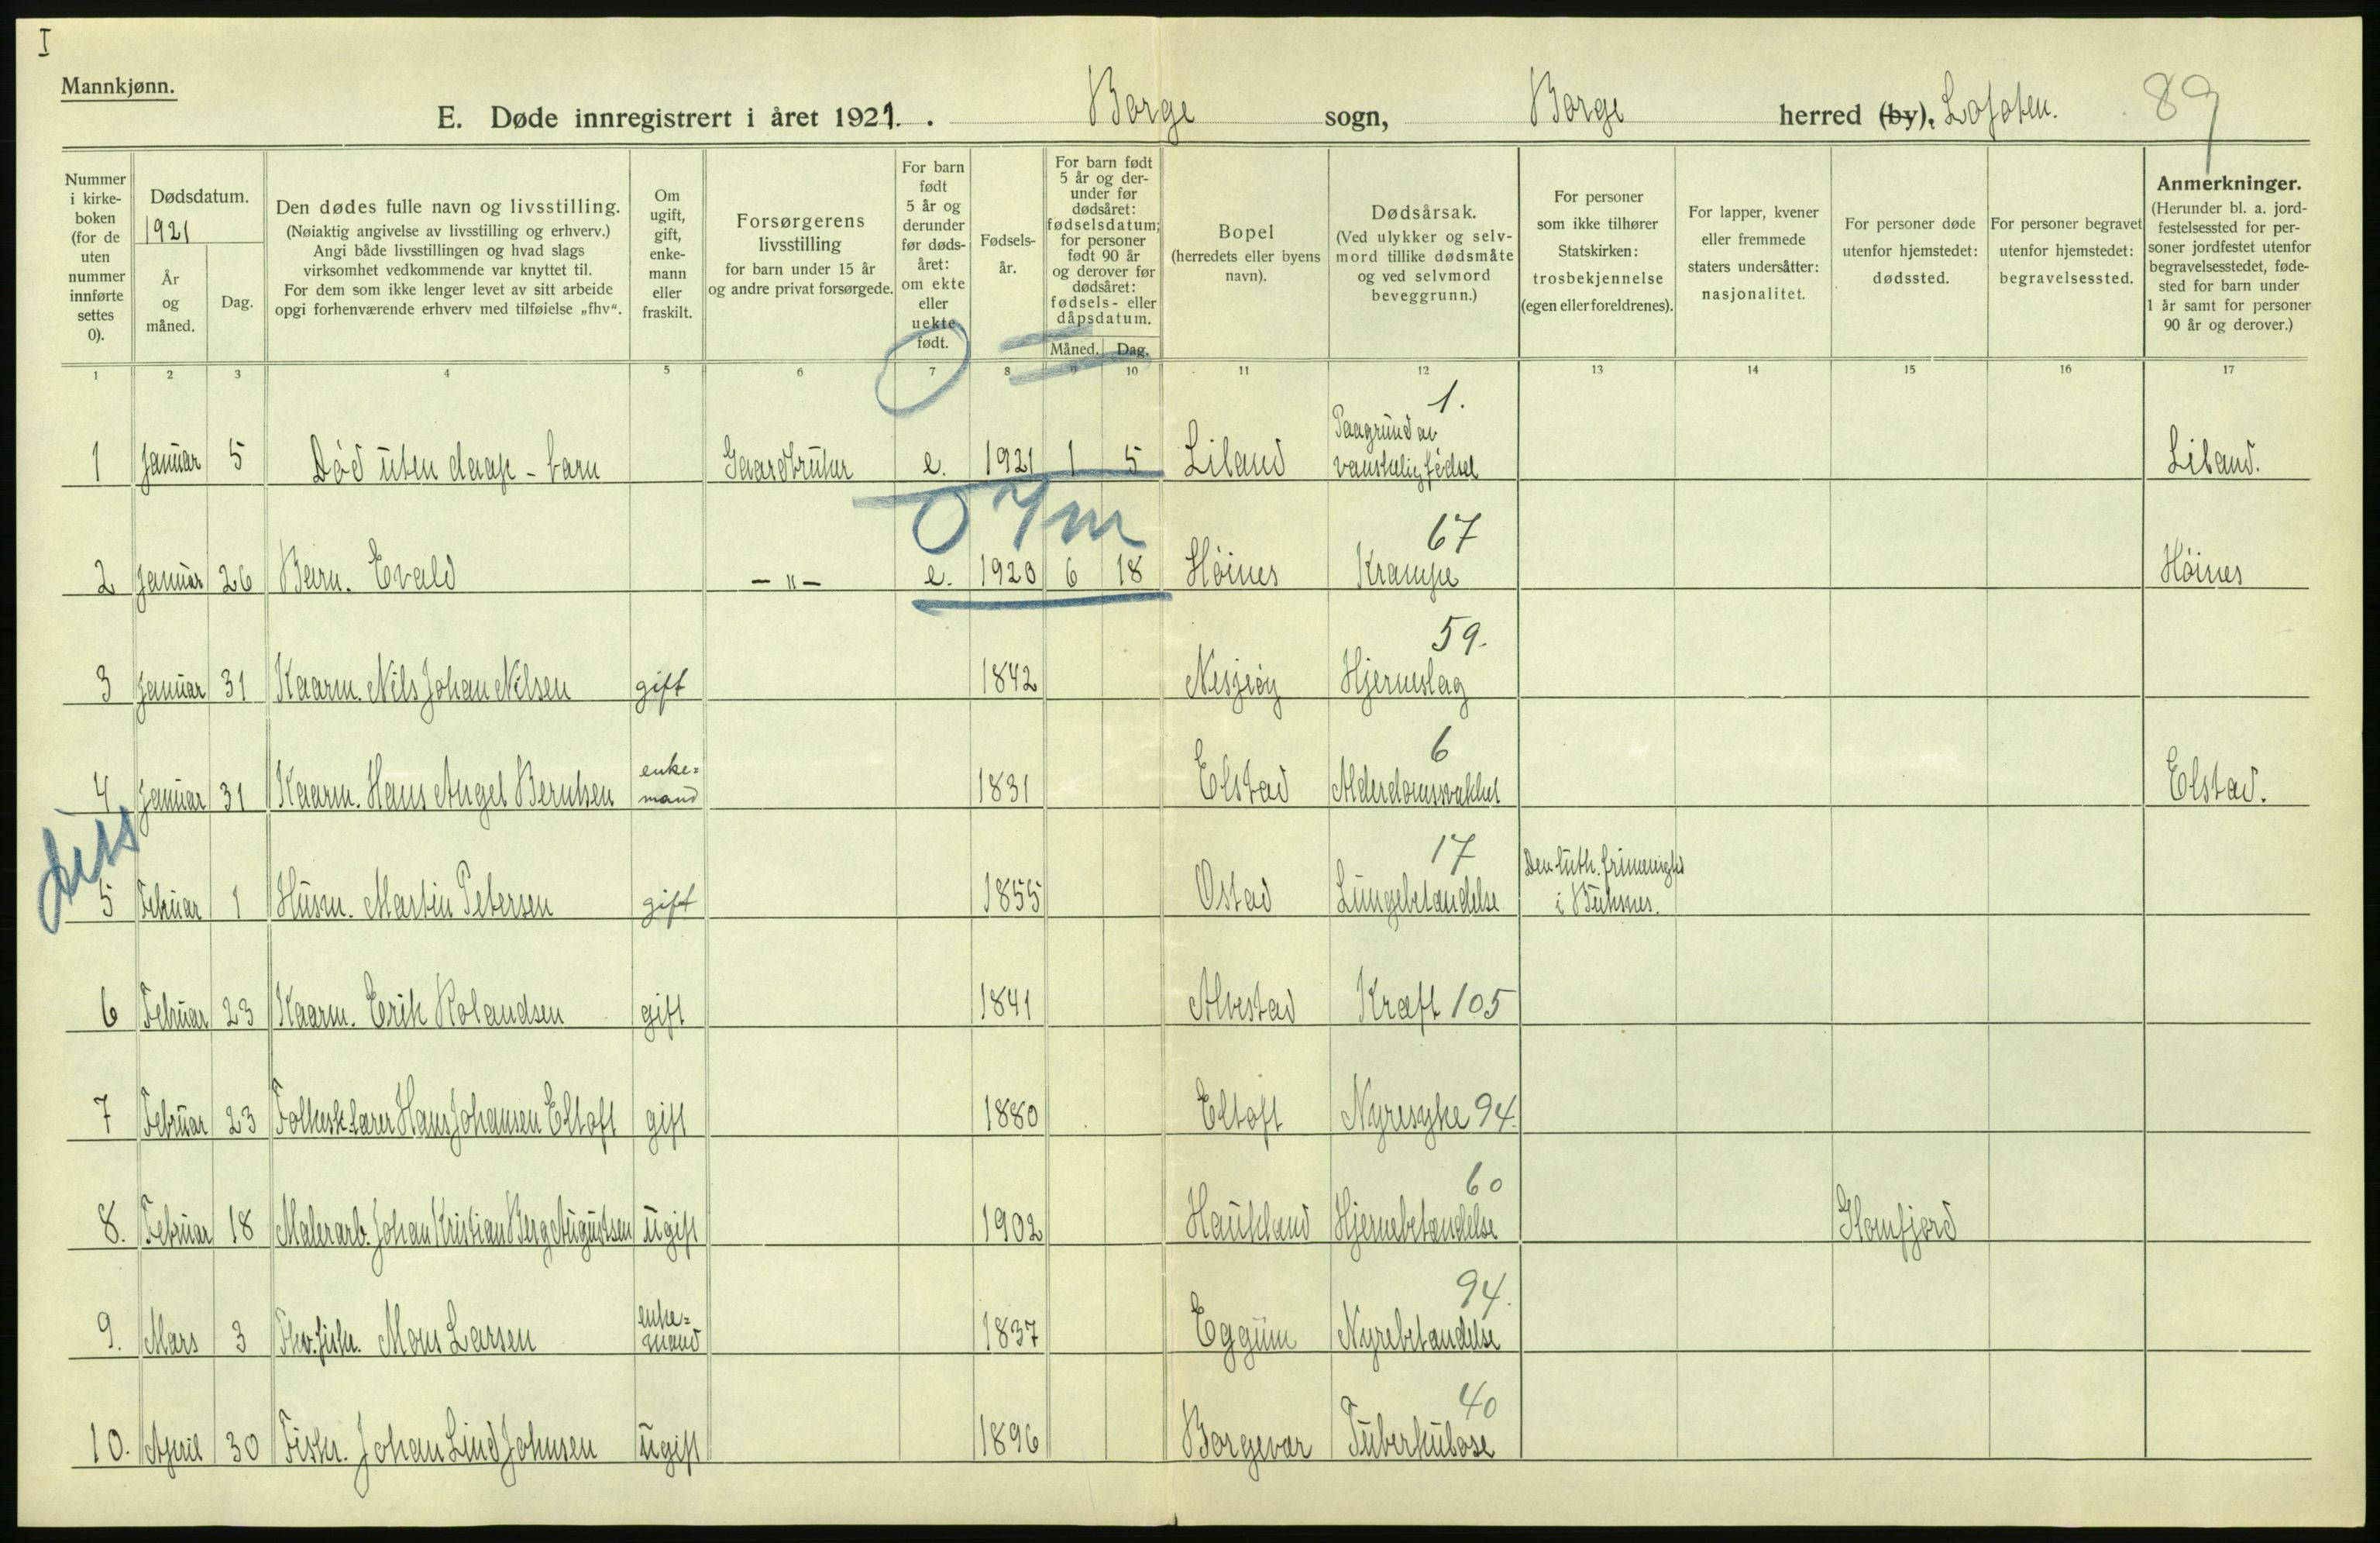 I
Mannkjønn.
E. Døde innregistrert i året 1921. Borge sogn, Borge herred (by), Lofoten. 89
Nummer i kirkeboken (for de uten nummer innførte settes 0).
Dødsdatum. 1921
År og måned.
Dag.
Den dødes fulle navn og livsstilling.
(Nøiaktig angivelse av livsstilling og erhverv.)
Angi både livsstillingen og hvad slags
virksomhet vedkommende var knyttet til.
For dem som ikke lenger levet av sitt arbeide
opgi forhenværende erhverv med tilføielse „fhv“.
Om ugift, gift, enkemann eller fraskilt.
Forsørgerens livsstilling
for barn under 15 år
og andre privat forsørgede.
For barn født 5 år og derunder før dødsåret: om ekte eller uekte født.
Fødselsår.
For barn født 5 år og derunder før dødsåret: fødselsdatum; for personer født 90 år og derover før dødsåret: fødsels- eller dåpsdatum.
Måned. Dag.
Bopel
(herredets eller byens navn).
Dødsårsak.
(Ved ulykker og selvmord tillike dødsmåte og ved selvmord beveggrunn.)
For personer som ikke tilhører Statskirken: trosbekjennelse (egen eller foreldrenes).
For lapper, kvener eller fremmede staters undersåtter: nasjonalitet.
For personer døde utenfor hjemstedet: dødssted.
For personer begravet utenfor hjemstedet: begravelsessted.
Anmerkninger.
(Herunder bl. a. jordfestelsessted for personer jordfestet utenfor begravelsesstedet, fødested for barn under 1 år samt for personer 90 år og derover.)
1 2 3 4 5 6 7 8 9 10 11 12 13 14 15 16 17
1 Januar 5 Død uten daap - barn Gaardbruker e. 1921 1 5 Liland Paagrund av vanskelig fødsel 1. Liland.
0 7 m
2 Januar 26 Barn. Evald -"- e. 1920 6 18 Høines Krampe 67 Høines
3 Januar 31 Kaarm. Nils Johan Nilsen gift 1842 Hjerneslag 59.
4 Januar 31 Kaarm. Hans Angel Berntsen enke=mand 1831 Elstad Alderdomssvakhet 6 Elstad.
5 Februar 1 Husm. Martin Petersen gift 1855 Ostad Lungebetændelse 17 Den luth. frimenighed i Buksnes.
6 Februar 23 Kaarm. Erik Rolandsen gift 1841 Alvestad Kræft 105
7 Februar 23 Folkesk.lærer Hans Johansen Eltoft gift 1880 Eltoft Nyresyke 94.
8. Februar 18 Malerarb. Johan Kristian Berg Augustsen ugift 1902 Haukland Hjernebetændelse 60 Glomfjord
9. Mars 3 Fhv. fisker. Mons Larsen enke=mand 1837 Eggum Nyrebetændelse 94.
10. April 30 Fisker. Johan Lind Johnsen ugift 1896 Borgevær Tuberkulose 40